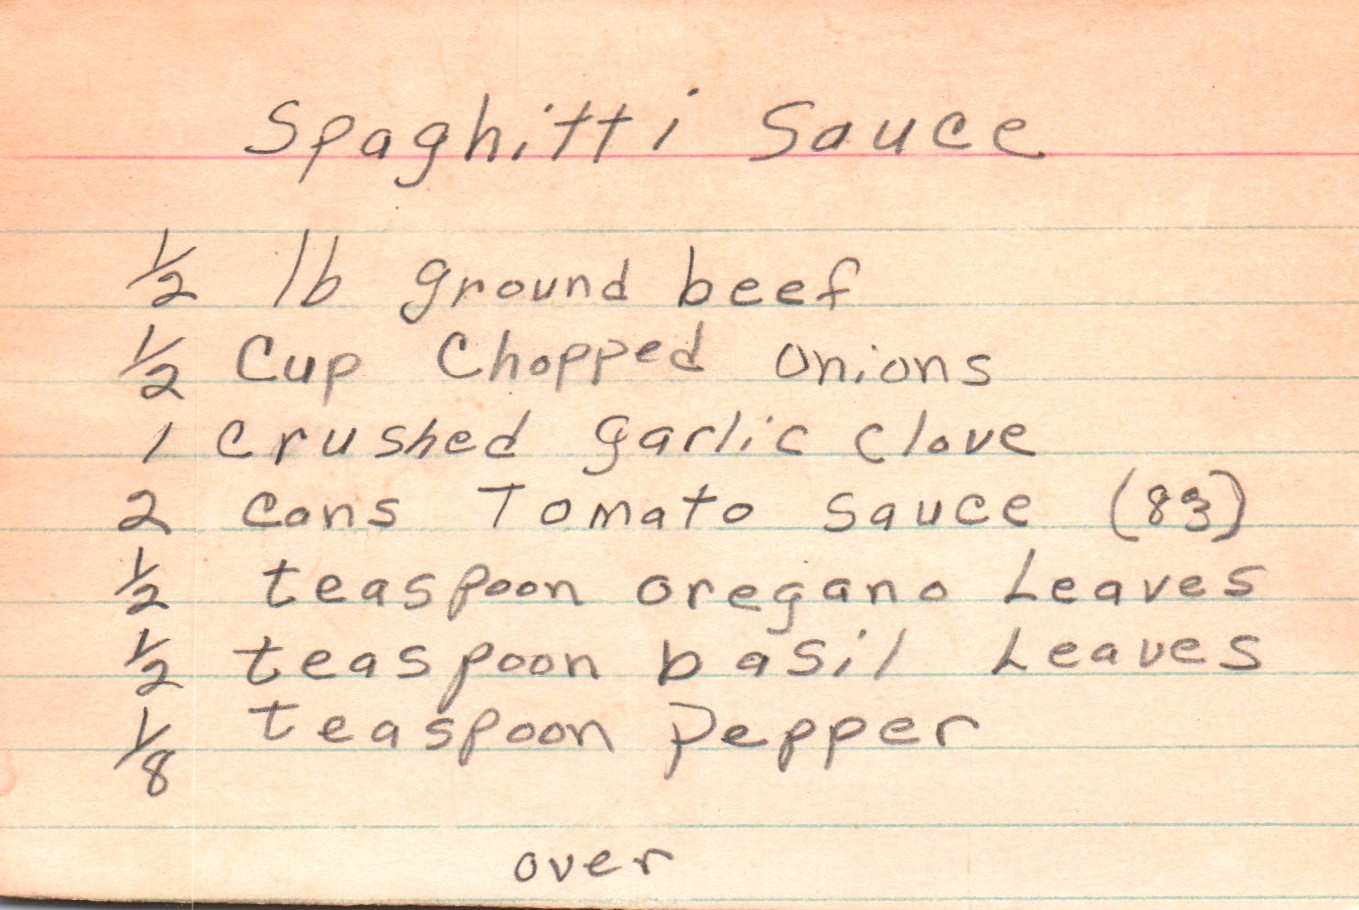 Spaghitti Sauce
½ lb ground beef
½ Cup Chopped onions
1 crushed garlic clove
2 cans Tomato Sauce (83)
½ teaspoon oregano Leaves
½ teaspoon basil Leaves
⅛ teaspoon pepper
over